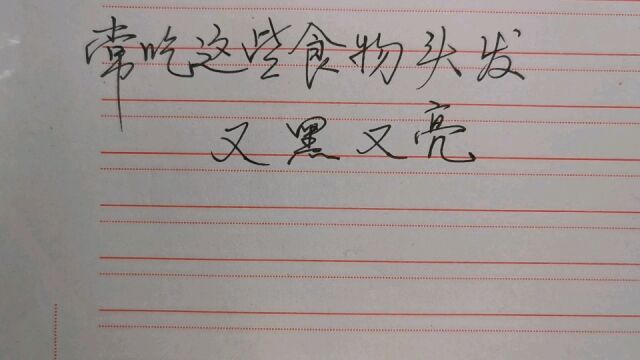 常吃这些食物头发
又黑又亮